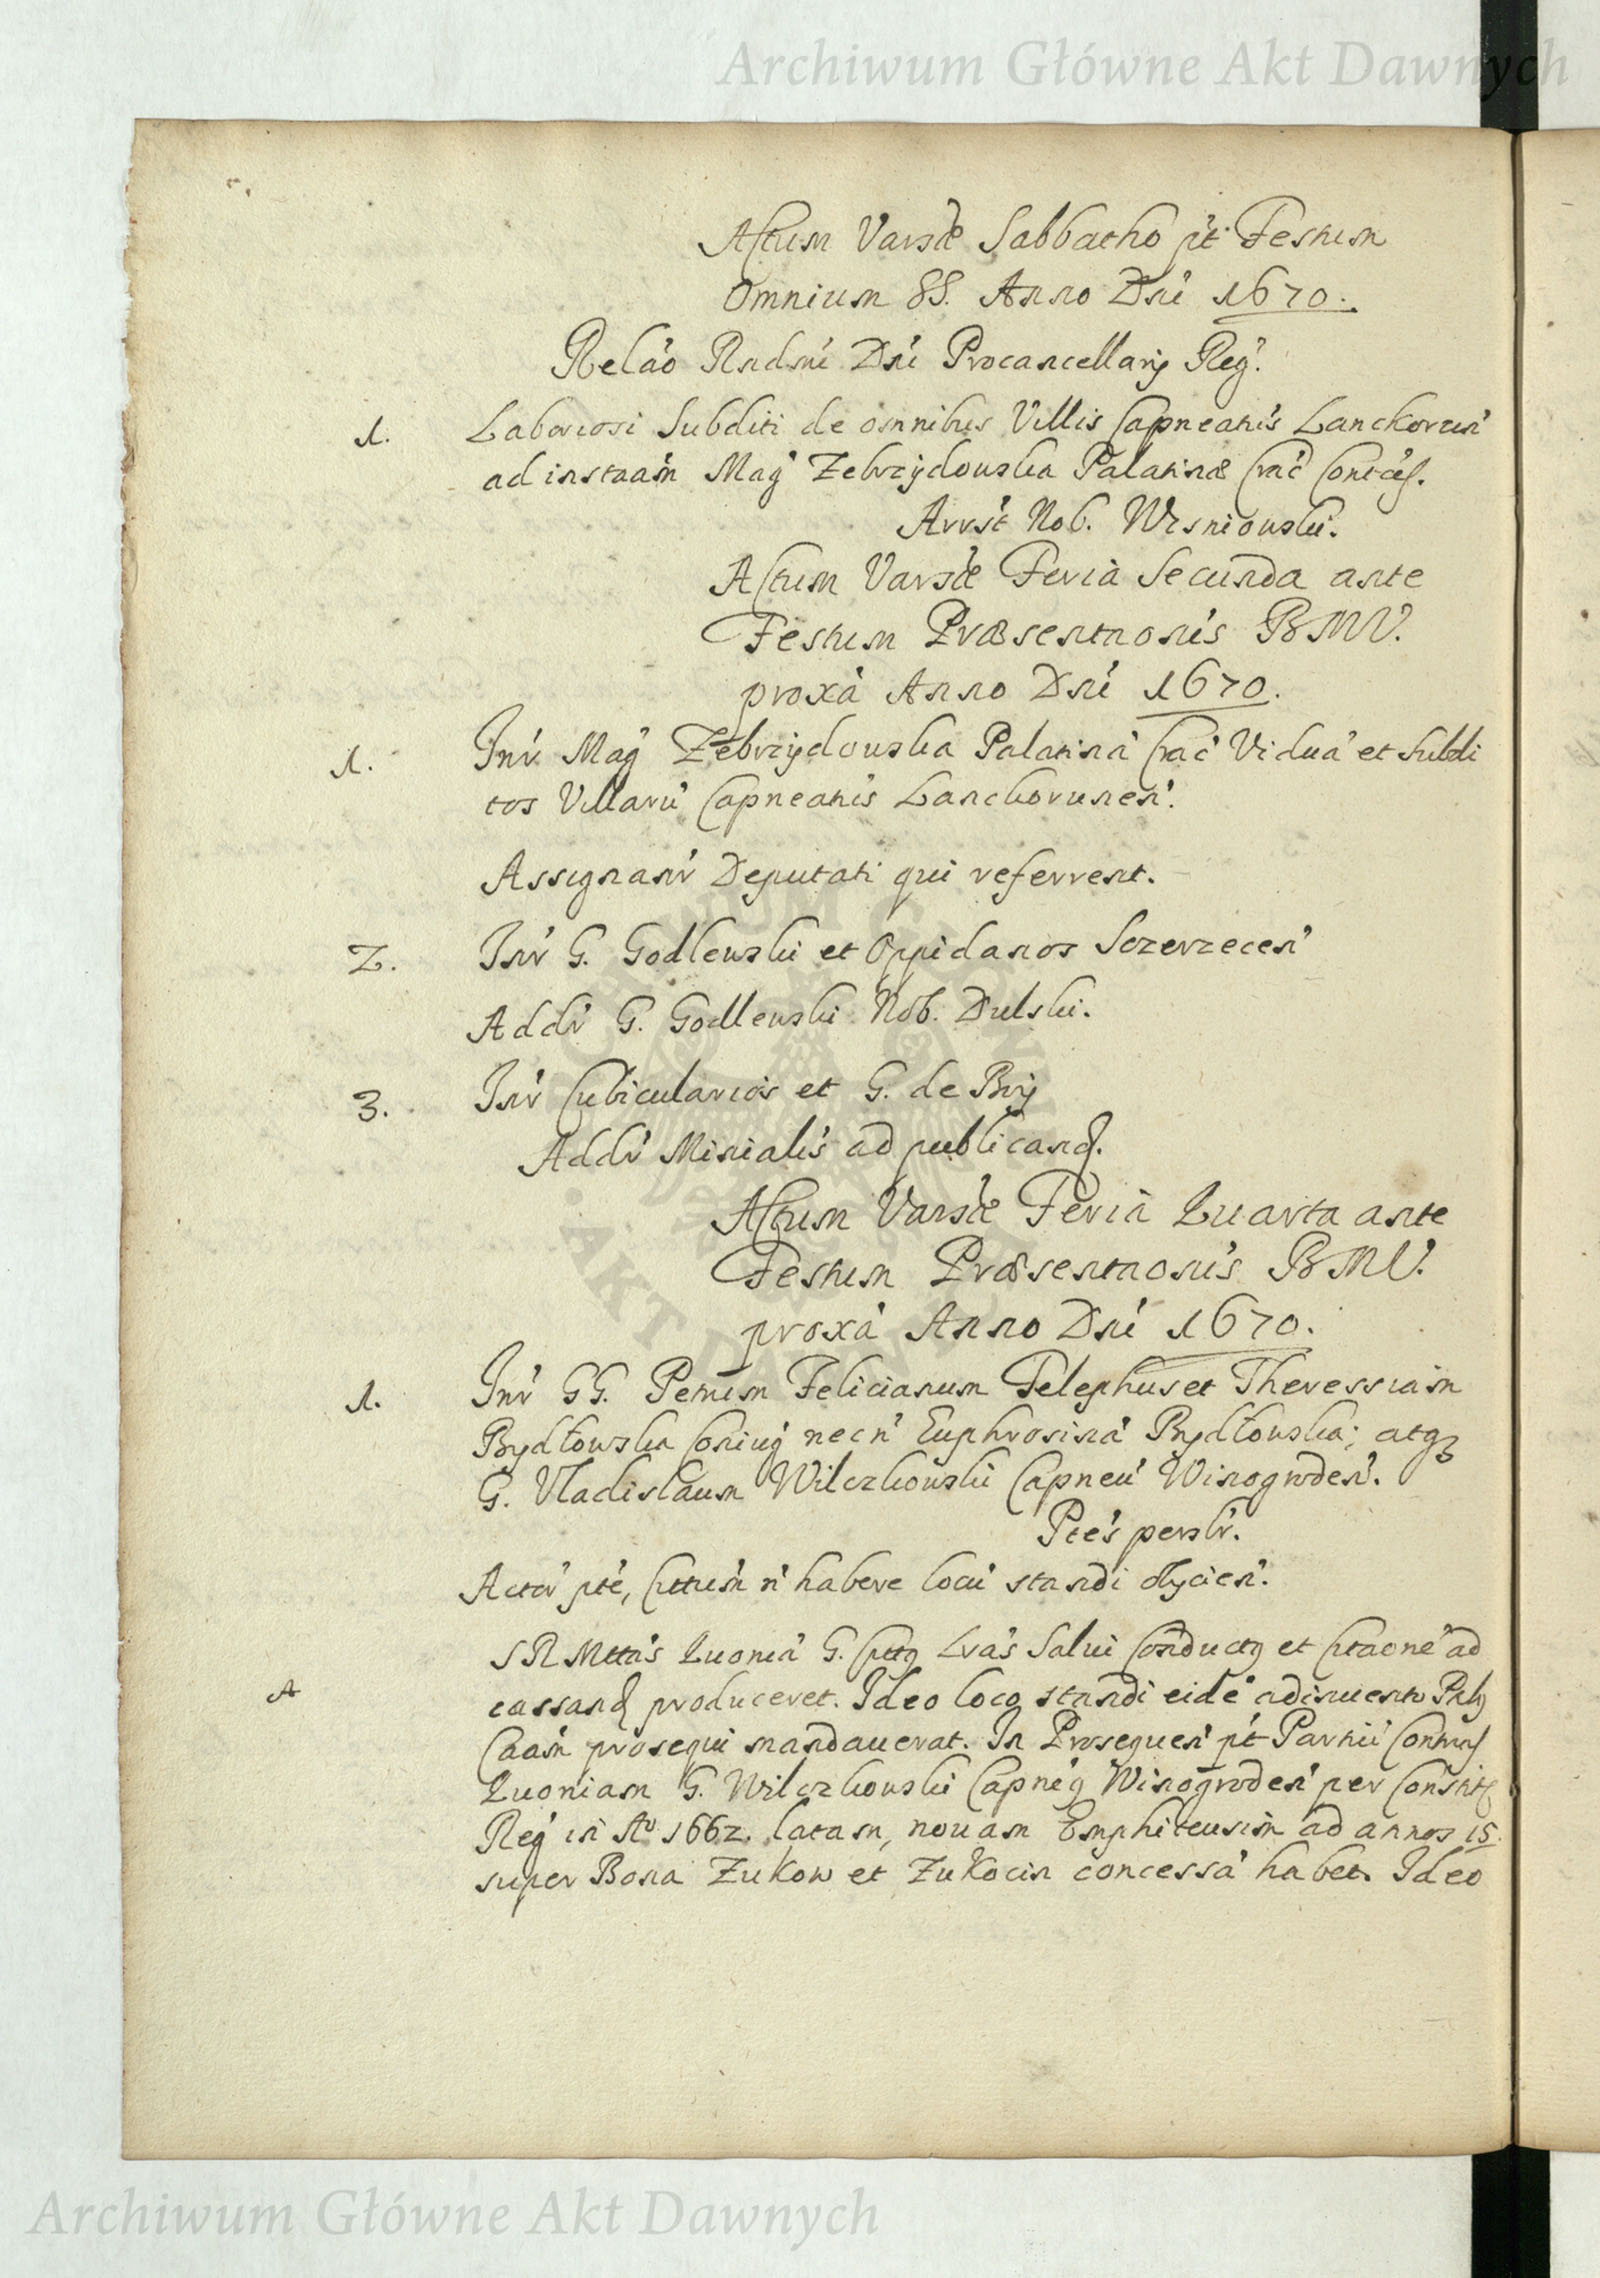 Archiwum Główne Akt Dawnych
Actum Varsæ Sabbatho pt Festum
Omnium SS. Anno Dni 1670.
Relao Rndmi Dni Procancellarij Reg.
1. Laboriosi Subditi de omnibus Villis Capneatis Lanckorun
ad instaam Mag Zebrzydowska Palatinæ Crac
Arrst Nob. Wisniowski.
Actum Varsæ Feria Secunda ante
Festum Præsentaonis BMV.
proxa Anno Dni 1670.
1. Inr Mag Zebrzydowska Palatina Crac Vidua et Subdi
tos Villaru Capneatis Lanckorunen.
Assignanr Deputati qui referrent.
2. Inr G. Godlewski et Oppidanos Sczerzecen
Addr G. Godlewski Nob. Dulski.
3. Inr Cubicularios et G. de Bry
Addr Minialis ad publicand.
Actum Varsæ Feria Quarta ante
Festum Præsentaonis BMV.
proxa Anno Dni 1670.
1. Inr GG. Petrum Felicianum Telephus et Theressiam
Bydłowska Coniug necn Euphrosina Bydłowska; atq
G. Vladislaum Wilczkowski Capneu Winogroden.
Ptes perslr.
Actor pte, Cittum n habere locu standi
SRMttas Quonia G. Cittg Lras Salui Conductg et Citaone ad
A cassand produceret. Ideo loco standi eide adinuento
Caam prosequi mandauerat. In Prosequen pt Partiu
Quoniam G. Wilczkowski Capneg Winogroden per Constit
Reg in Ao 1662. latam, nouam Emphiteusim ad annos 15.
super Bona Zukow et Zukocin concessa habet. Ideo
ARCHIWUM GŁÓWNE · AKT DAWNYCH ·
Archiwum Główne Akt Dawnych